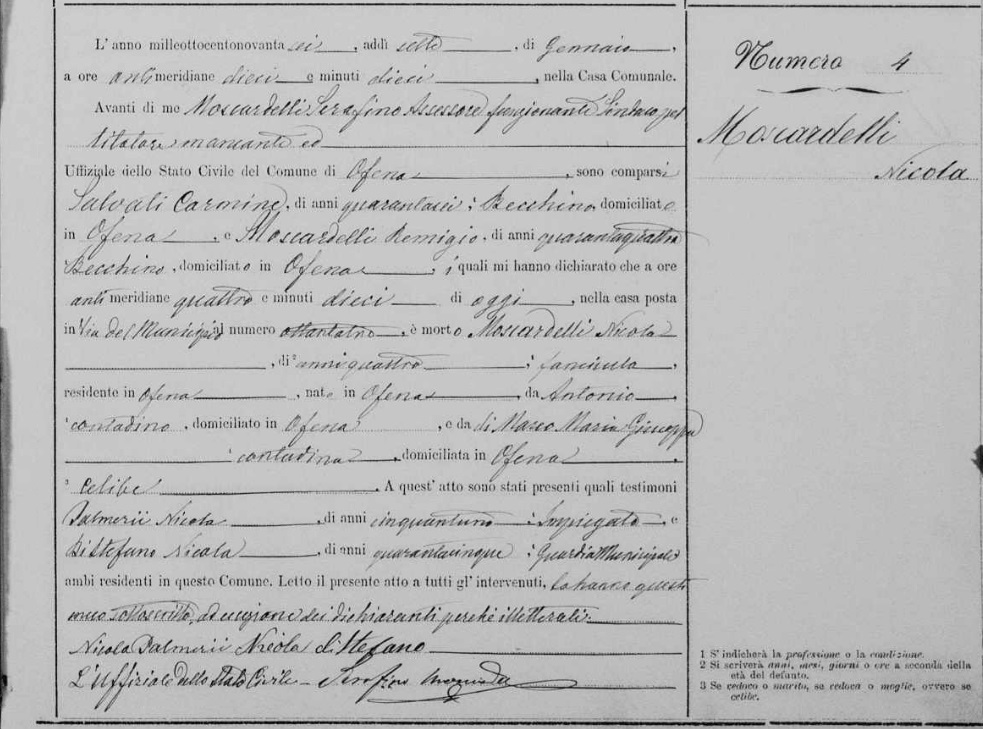 L'anno milleottocentonovanta sei, addì sette, di Gennaio,
a ore antimeridiane dieci e minuti dieci, nella Casa Comunale.
Avanti di me Moscardelli Serafino Assessore funzionante Sindaco pel
titolare mancante ed
Uffiziale dello Stato Civile del Comune di Ofena, sono comparsi
Salvati Carmine, di anni quarantasei; Becchino, domiciliato
in Ofena, e Moscardelli Remigio, di anni quarantaquattro
Becchino, domiciliato in Ofena; i quali mi hanno dichiarato che a ore
antimeridiane quattro e minuti dieci di oggi, nella casa posta
in Via del Municipio al numero, è morto Moscardelli Nicola
, di 2 anni quattro; fanciullo,
residente in Ofena, nato in Ofena da Antonio
1 contadino, domiciliato in Ofena, e da di Marco Maria Giuseppa
1 contadina, domiciliata in Ofena
3 celibe. A quest'atto sono stati presenti quali testimoni
Palmerii Nicola, di anni cinquantuno; Impiegato, e
Di Stefano Nicola, di anni quarantacinque; Guardia Municipale
ambi residenti in questo Comune. Letto il presente atto a tutti gl'intervenuti, lo hanno questi
meco sottoscritto, ad eccezione dei dichiaranti perché illetterati.
Nicola Palmerii Nicola di Stefano
L'Uffiziale dello Stato Civile Serafino
Numero 4
Moscardelli
Nicola
1 S'indicherà la professione o la condizione.
2 Si scriverà anni, mesi, giorni o ore a seconda della
età del defunto.
3 Se vedovo o marito, se vedova o moglie, ovvero se
celibe.